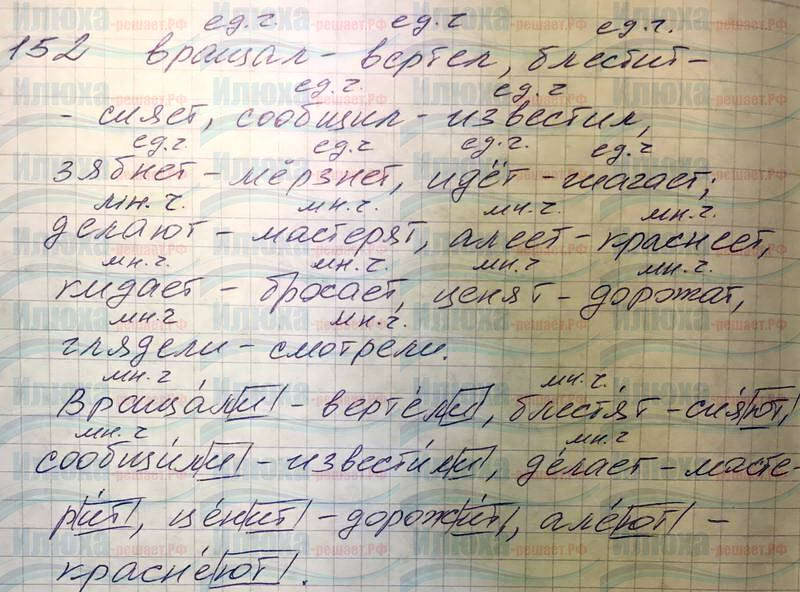 ед.ч. ед.ч ед.ч.
152 вращал - вертел, блестит -
ед.ч. ед.ч
- сияет, сообщил - известил,
ед.ч ед.ч ед.ч. ед.ч
зябнет - мёрзнет, идёт - шагает;
мн.ч. мн.ч. мн.ч. мн.ч.
делают - мастерят, алеет - краснеет,
мн.ч. мн.ч. мн.ч мн.ч.
кидает - бросает, ценят - дорожат,
мн.ч мн.ч.
глядели - смотрели.
мн.ч мн.ч.
Враща́ли - верте́ли, блестя́т - сия́ют,
мн.ч мн.ч
сообщи́ли - извести́ли, де́лает - масте-
ри́т, це́нит - дорожи́т, але́ют -
красне́ют.
Илюха-решает.РФ